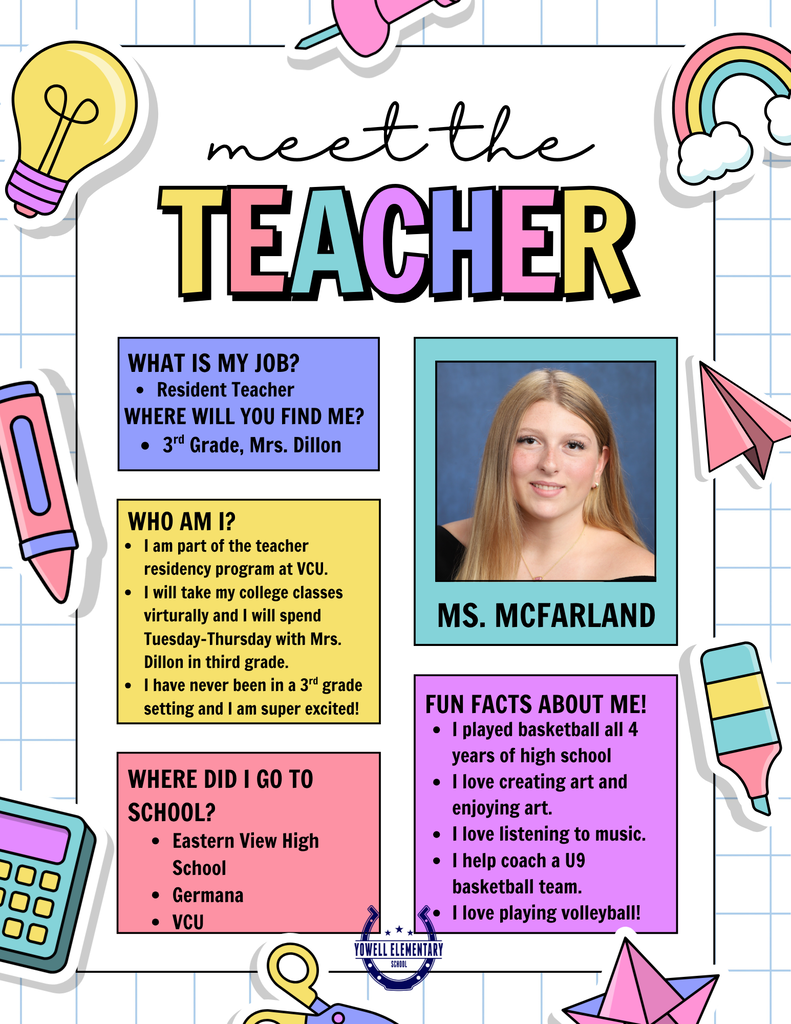 meet the
TEACHER
WHAT IS MY JOB?
• Resident Teacher
WHERE WILL YOU FIND ME?
• 3rd Grade, Mrs. Dillon
WHO AM I?
• I am part of the teacher
residency program at VCU.
• I will take my college classes
virturally and I will spend
Tuesday-Thursday with Mrs.
Dillon in third grade.
• I have never been in a 3rd grade
setting and I am super excited!
WHERE DID I GO TO
SCHOOL?
• Eastern View High
School
• Germana
• VCU
MS. MCFARLAND
FUN FACTS ABOUT ME!
• I played basketball all 4
years of high school
• I love creating art and
enjoying art.
• I love listening to music.
• I help coach a U9
basketball team.
• I love playing volleyball!
YOWELL ELEMENTARY
SCHOOL